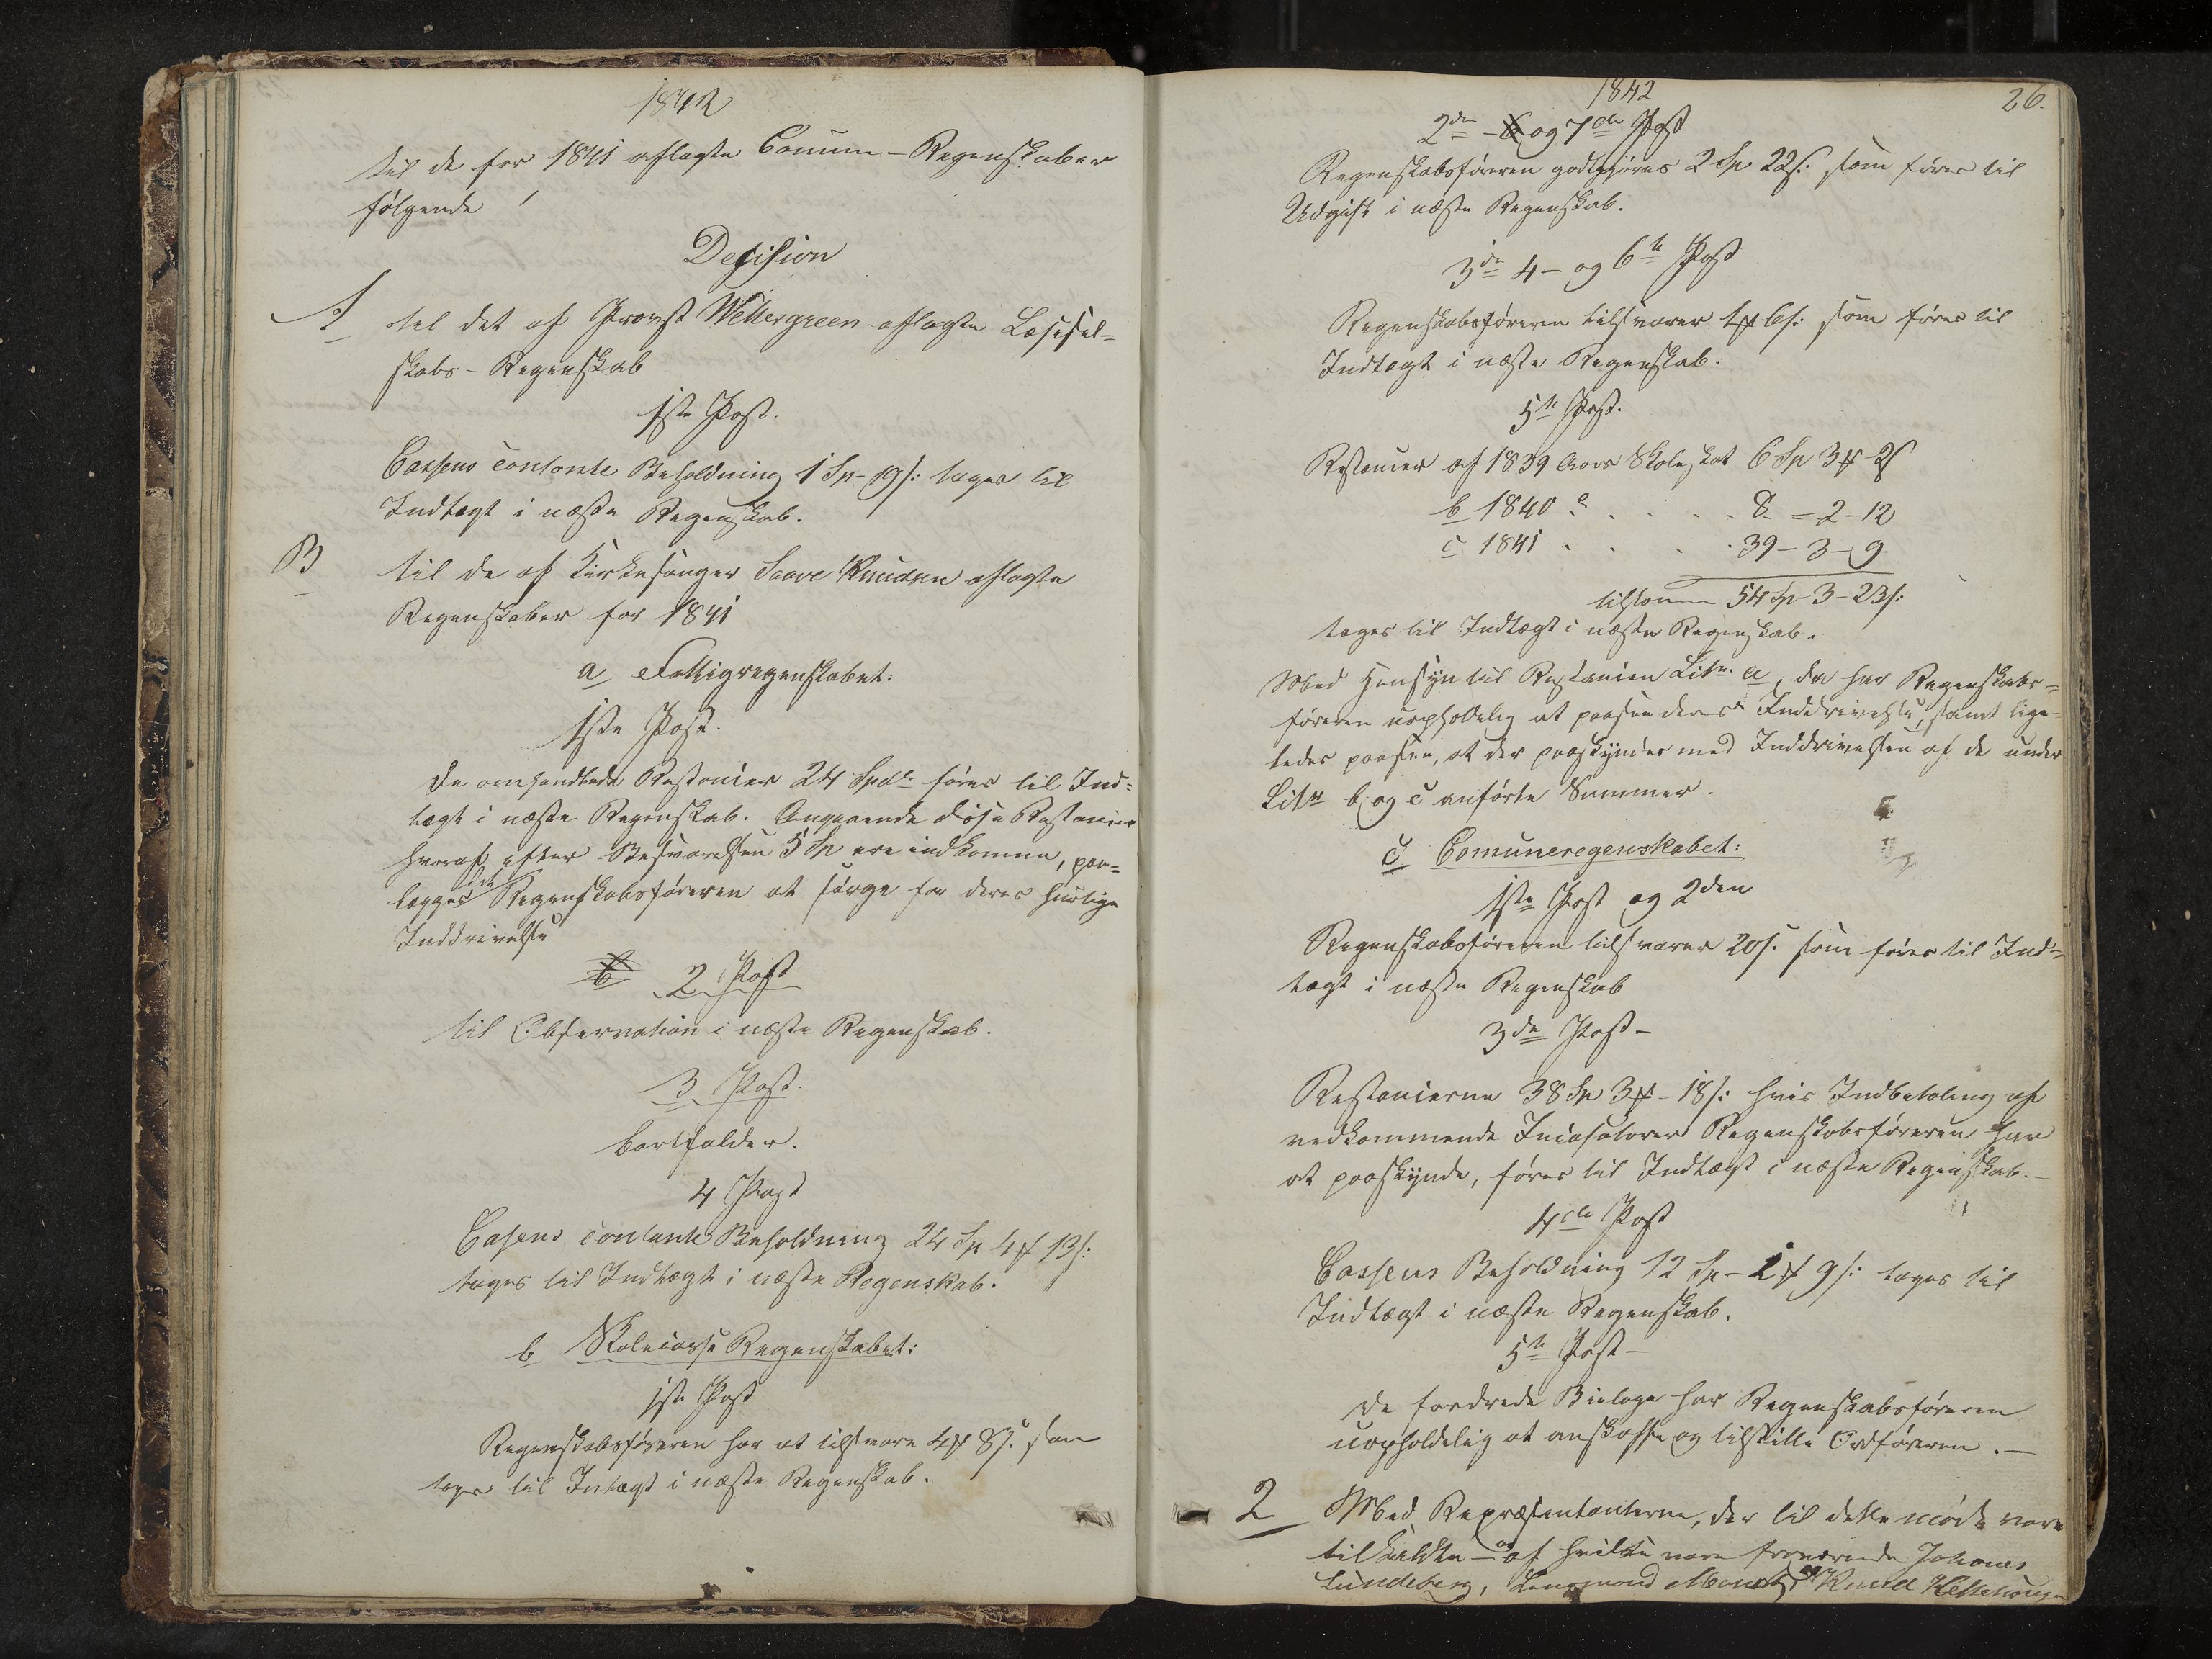 1842
til de for 1841 aflagte Comune-Regenskaber
følgende
Decision
A til det af Provst Wettergreen aflagte Læsesel=
skabs-Regenskab
1ste Post.
Cassens contante Beholdning 1 Sp - 9 s: tages til
Indtægt i næste Regenskab.
B til de af Kirkesanger Saave Knudsen aflagte
Regenskaber for 1841
a Fattigregenskabet:
1ste Post.
De omhandlede Restancier 24 Spdlr føres til Ind=
tægt i næste Regenskab. Angaaende disse Restancier
hvoraf efter Besvarelsen 5 Sp ere indkomne, paa=
lægges det Regenskabsføreren at sørge for deres hurtige
Inddrivelse
b 2 Post
til Observation i næste Regenskab.
3 Post.
bortfalder.
4 Post
Casens contante Beholdning 24 Sp 4 # 13 s:
tages til Indtægt i næste Regenskab.
b Skolecasse Regenskabet:
1ste Post
Regenskabsføreren har at tilsvare 4 # 8 s. som
tages til Intægt i næste Regenskab.
1842
26.
2den - 6 og 7de Post
Regenskabsføreren godtgjøres 2 Sp 22 s: som føres til
Udgift i næste Regenskab.
3de 4 - og 6te Post
Regenskabsføreren tilsvarer 1 # 6 s: som føres til
Indtægt i næste Regenskab.
5te Post.
Restancier af 1839 Aars Skoleskat 6 Sp 3 # 2 s
b 1840 . . . . 8 - 2 - 12
c 1841 . . . . 39 - 3 - 9
tilsammen 54 Sp - 3 - 23 s:
tages til Indtægt i næste Regenskab.
Med Hensyn til Restancien Litr. a, da har Regenskabs=
føreren uopholdelig at paasee deres Inddrivelse, samt lige=
ledes paasee, at der paaskyndes med Inddrivelsen af de under
Litr b og c anførte Summer.
c Comuneregenskabet:
1ste Post og 2den
Regenskabsføreren tilsvarer 20 s. som føres til Ind=
tægt i næste Regenskab
3de Post -
Restancierne 38 Sp 3 # - 18 s: hvis Indbetaling af
vedkommende Incasatorer Regenskabsføreren har
at paaskynde, føres til Indtægt i næste Regenskab. -
4de Post
Cassens Beholdning 12 Sp - 2 # 9 s: tages til
Indtægt i næste Regenskab.
5te Post -
De fordrede Bielage har Regenskabsføreren
uopholdelig at anskaffe og tilstille Ordføreren. -
2 Med Repræsentanterne, der til dette møde vare
tilkaldte - og af hvilke vare fraværende Johanes
Lundeberg, Lensmand og Knud